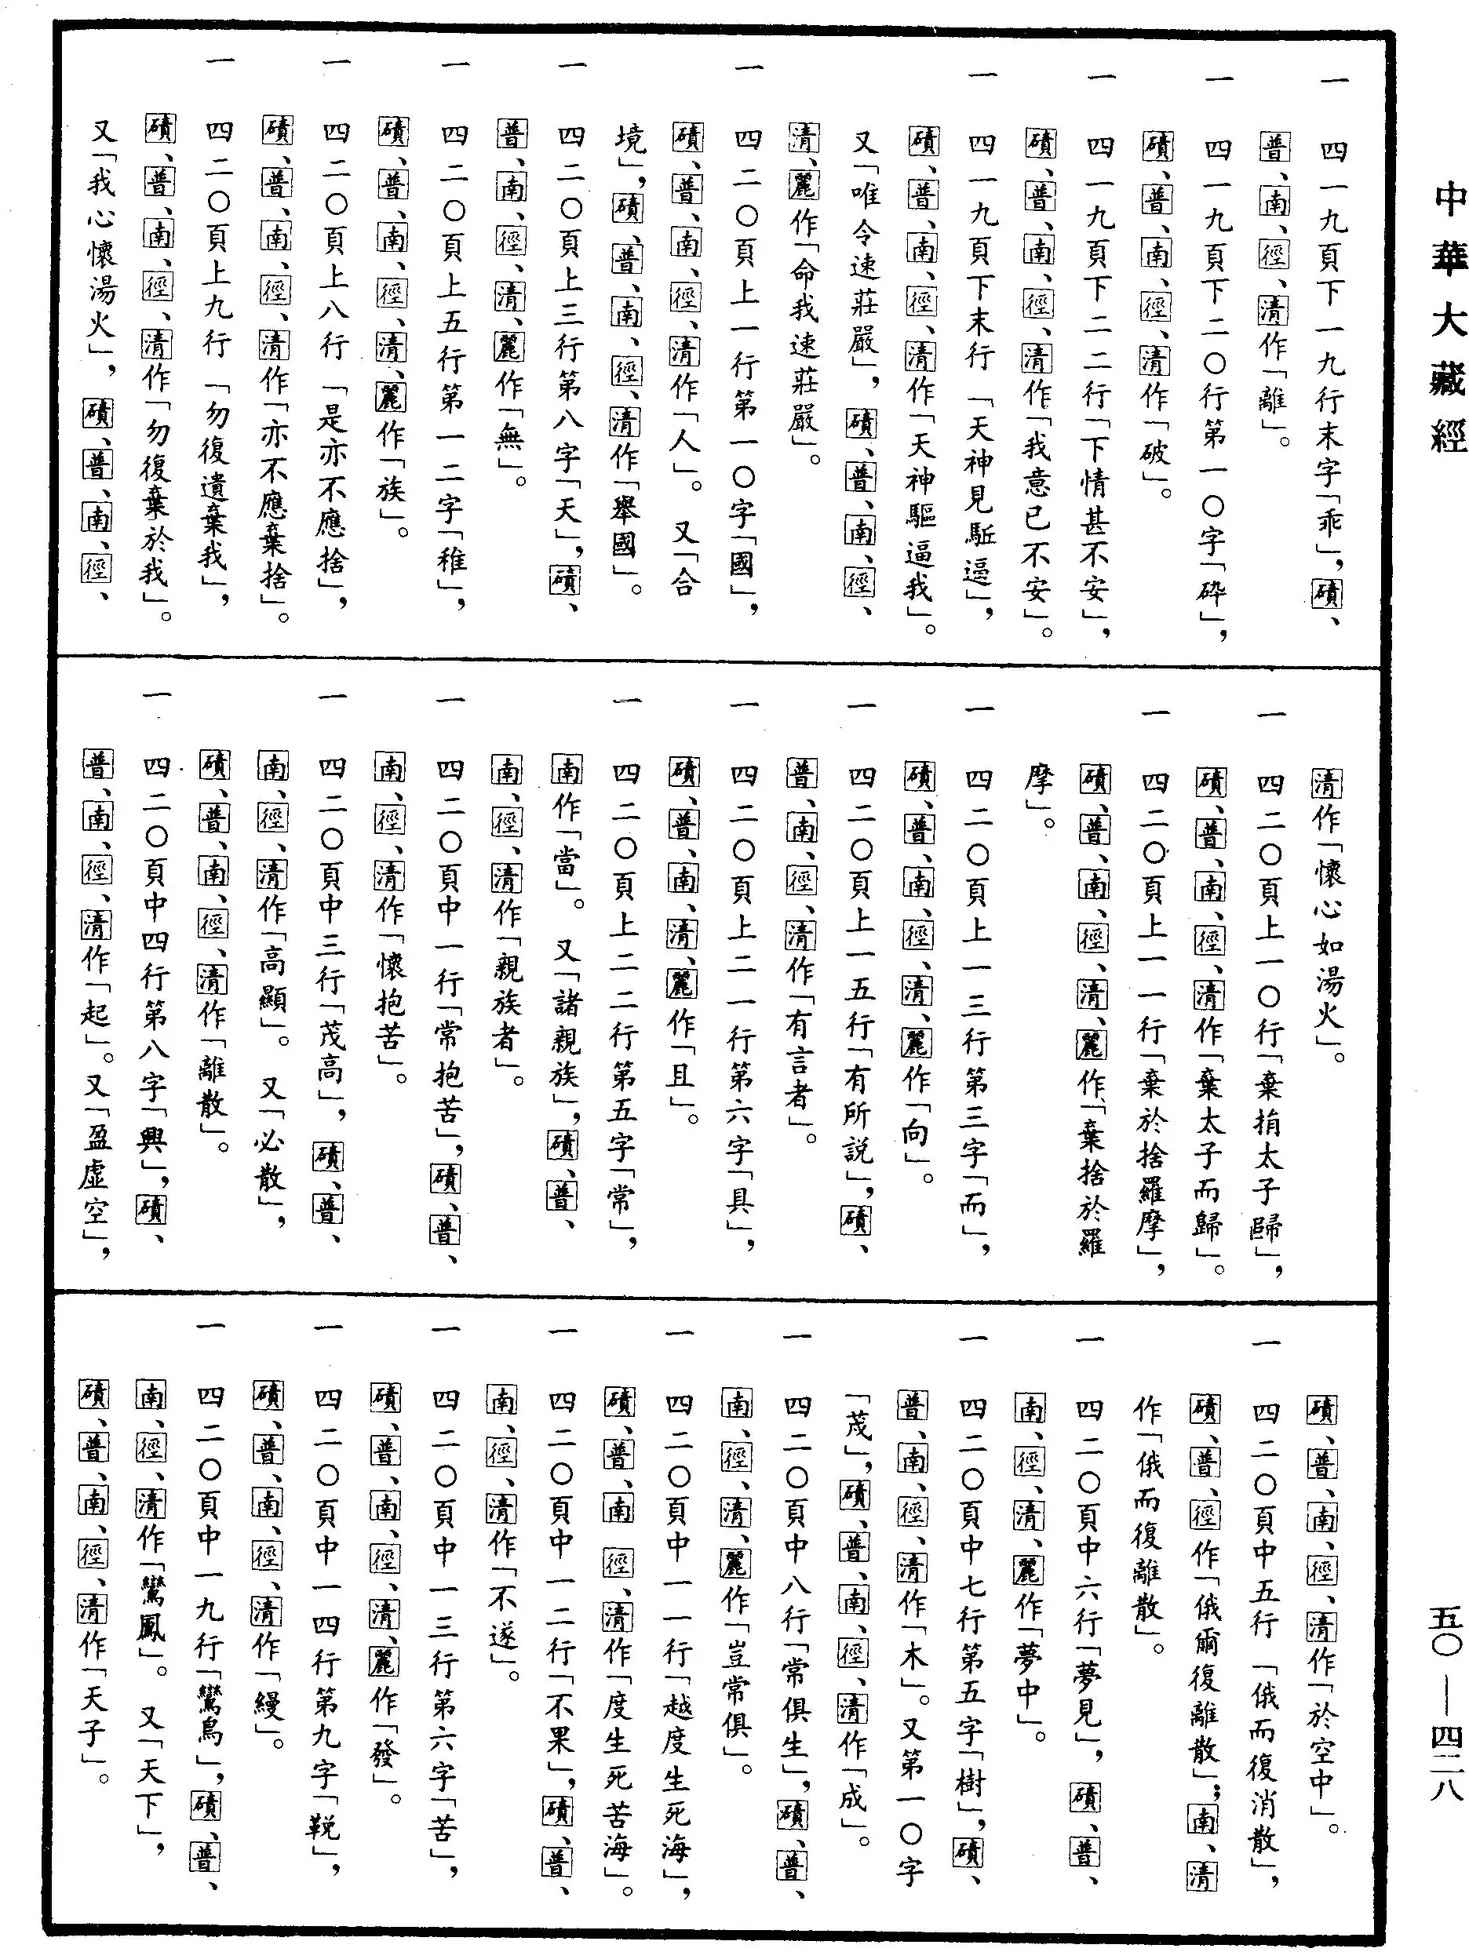 中華大藏經
一 四一九頁下一九行末字「乖」，磧、
普、南、徑、清作「離」。
一 四一九頁下二〇行第一〇字「碎」，
磧、普、南、徑、清作「破」。
一 四一九頁下二二行「下情甚不安」，
磧、普、南、徑、清作「我意已不安」。
一 四一九頁下末行「天神見駈逼」，
磧、普、南、徑、清作「天神驅逼我」。
又「唯令速莊嚴」，磧、普、南、徑、
清、麗作「命我速莊嚴」。
一 四二〇頁上一行第一〇字「國」，
磧、普、南、徑、清作「人」。又「合
境」，磧、普、南、徑、清作「舉國」。
一 四二〇頁上三行第八字「天」，磧、
普、南、徑、清、麗作「無」。
一 四二〇頁上五行第一二字「稚」，
磧、普、南、徑、清、麗作「族」。
一 四二〇頁上八行「是亦不應捨」，
磧、普、南、徑、清作「亦不應棄捨」。
一 四二〇頁上九行「勿復遺棄我」，
磧、普、南、徑、清作「勿復棄於我」。
又「我心懷湯火」，磧、普、南、徑、
清作「懷心如湯火」。
一 四二〇頁上一〇行「棄捐太子歸」，
磧、普、南、徑、清作「棄太子而歸」。
一 四二〇頁上一一行「棄於捨羅摩」，
磧、普、南、徑、清、麗作「棄捨於羅
摩」。
一 四二〇頁上一三行第三字「而」，
磧、普、南、徑、清、麗作「向」。
一 四二〇頁上一五行「有所說」，磧、
普、南、徑、清作「有言者」。
一 四二〇頁上二一行第六字「具」，
磧、普、南、清、麗作「且」。
一 四二〇頁上二二行第五字「常」，
南作「當」。又「諸親族」，磧、普、
南、徑、清作「親族者」。
一 四二〇頁中一行「常抱苦」，磧、普、
南、徑、清作「懷抱苦」。
一 四二〇頁中三行「茂高」，磧、普、
南、徑、清作「高顯」。又「必散」，
磧、普、南、徑、清作「離散」。
一 四二〇頁中四行第八字「興」，磧、
普、南、徑、清作「起」。又「盈虛空」，
磧、普、南、徑、清作「於空中」。
一 四二〇頁中五行「俄而復消散」，
磧、普、徑作「俄爾復離散」；南、清
作「俄而復離散」。
一 四二〇頁中六行「夢見」，磧、普、
南、徑、清、麗作「夢中」。
一 四二〇頁中七行第五字「樹」，磧、
普、南、徑、清作「木」。又第一〇字
「茂」，磧、普、南、徑、清作「成」。
一 四二〇頁中八行「常俱生」，磧、普、
南、徑、清、麗作「豈常俱」。
一 四二〇頁中一一行「越度生死海」，
磧、普、南 徑、清作「度生死苦海」。
一 四二〇頁中一二行「不果」，磧、普、
南、徑、清作「不遂」。
一 四二〇頁中一三行第六字「苦」，
磧、普、南、徑、清、麗作「發」。
一 四二〇頁中一四行第九字「鞔」，
磧、普、南、徑、清作「縵」。
一 四二〇頁中一九行「鸞鳥」，磧、普、
南、徑、清作「鸞鳳」。又「天下」，
磧、普、南、徑、清作「天子」。
五〇——四二八